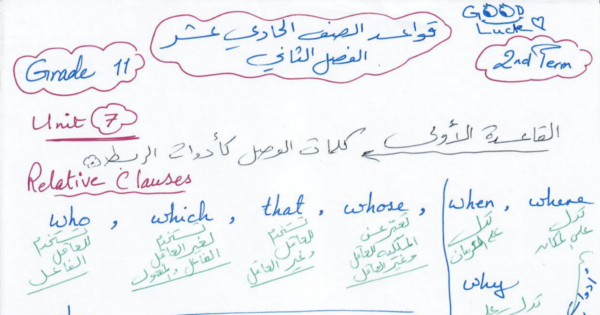 GOOD
Luck
قواعد الصف الحادي عشر
الفصل الثاني
Grade 11
2nd Term
Unit 7
القاعدة الأولى كلمات الوصل كأدوات الربط
Relative Clauses
who , which , that , whose , when , where
تستخدم للعاقل الفاعل
تستخدم لغير العاقل الفاعل والمفعول
تستخدم للعاقل وغير العاقل
تعبر عن الملكية للعاقل وغير العاقل
تدل على الزمان
تدل على المكان
why
تدل على